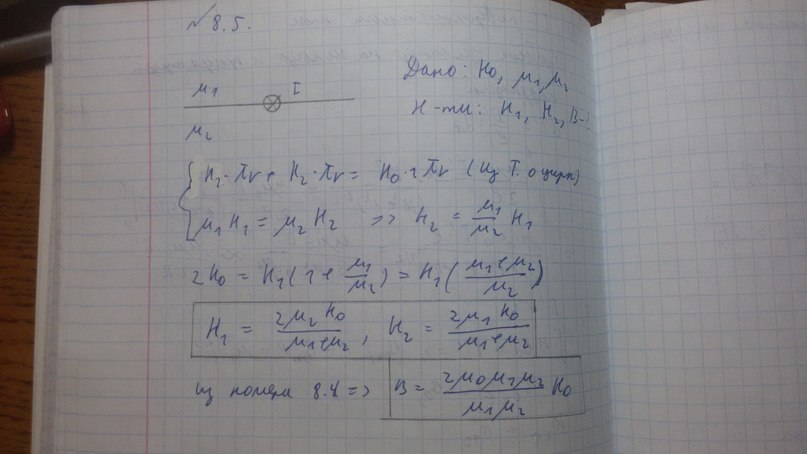 № 8.5.
μ1 I
μ2
Дано: H0, μ1, μ2
Н-ти: H1, H2, B-?
H1·πr + H2·πr = H0·2πr (Из Т. о цирк)
μ1 H1 = μ2 H2 => H2 = μ1/μ2 H1
2H0 = H1(1 + μ1/μ2) = H1(μ1+μ2/μ2)
H1 = 2μ2 H0/μ1+μ2, H2 = 2μ1 H0/μ1+μ2
из номера 8.4 => B = 2μ0μ1μ2/μ1μ2 H0